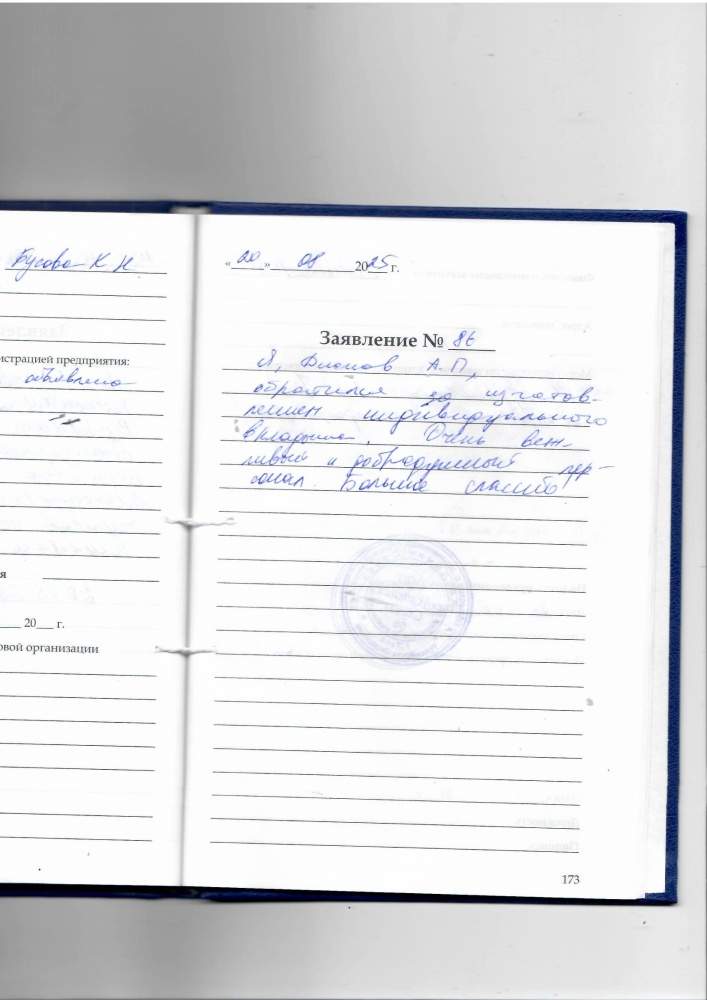 Бусова К. Н.
истрацией предприятия:
объявлена
я
20 г.
овой организации
«20» 08 2025 г.
Заявление № 86
Я, А. П.,
обратился за изготов-
лением индивидуального
вкладыша. Очень веж-
ливый и добродушный пер-
сонал. Большое спасибо
173